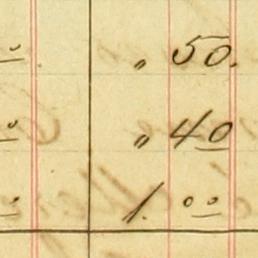 " 50.
" 40
1. 00